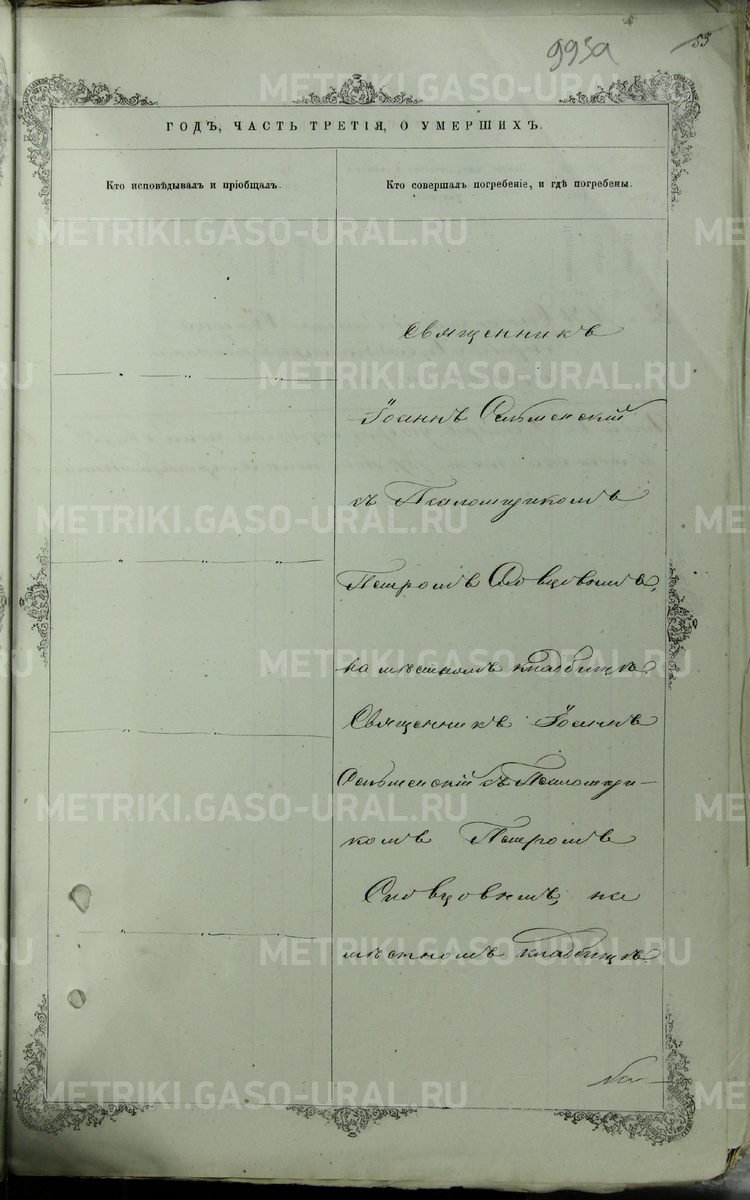 993а
53
METRIKI.GASO-URAL.RU
ГОДЪ, ЧАСТЬ ТРЕТІЯ, О УМЕРШИХЪ.
Кто исповѣдывалъ и пріобщалъ.
Кто совершалъ погребеніе, и гдѣ погребены.
Священникъ
Іоаннъ
съ Псаломщикомъ
Петромъ Словцовымъ,
на мѣстномъ кладбищѣ.
Священникъ Іоаннъ
съ Псаломщи-
комъ Петромъ
Словцовымъ, на
мѣстномъ кладбищѣ.